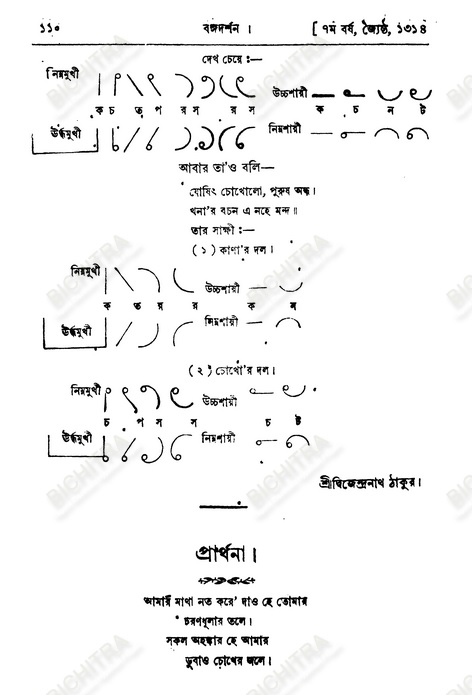 ১১০ বঙ্গদর্শন। [ ৭ম বর্ষ, জ্যৈষ্ঠ, ১৩১৪
দেখ চেয়ে :—
নিম্নমুখী উচ্চশায়ী
ক চ ত প র স র স ক চ ন ট
ঊর্দ্ধমুখী নিম্নশায়ী
আবার তা'ও বলি—
যোষিৎ চোখোলো, পুরুষ অন্ধ।
খনা'র বচন এ নহে মন্দ॥
তার সাক্ষী :—
( ১ ) কাণা'র দল।
নিম্নমুখী উচ্চশায়ী
ক ত র র ক ন
ঊর্দ্ধমুখী নিম্নশায়ী
( ২ ) চোখো'র দল।
নিম্নমুখী উচ্চশায়ী
চ প স স চ ট
ঊর্দ্ধমুখী নিম্নশায়ী
শ্রীদ্বিজেন্দ্রনাথ ঠাকুর।
প্রার্থনা।
আমার মাথা নত করে' দাও হে তোমার
চরণধূলার তলে।
সকল অহঙ্কার হে আমার
ডুবাও চোখের জলে।
BICHITRA